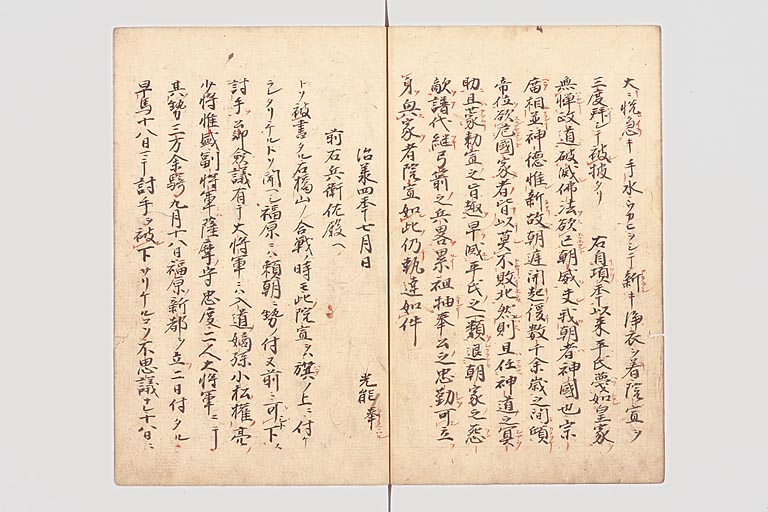 大ニ悦急キ手水ウカヒヲシテ新キ浄衣ヲ着院宣ヲ
三度拝シテ被披ケリ 右自項年以来平氏蔑如皇家
無憚政道破滅佛法欲亡朝威夫我朝者神國也宗
廟相並神德惟新故朝廷開起後数千余歳之間傾
帝位欲危國家者皆以莫不敗北然則且任神道之冥
助且蒙勅宣之旨趣早滅平氏之一類退朝家之怨
敵譜代継弓箭之兵畧累祖抽奉公之忠勤可立
身興家者院宣如此仍執達如件
治承四年七月日 光能奉
前右兵衛佐殿ヘ
トソ被書タル石橋山ノ合戦ノ時モ此院宣ヲハ旗ノ上ニ付
ラレタリケルトソ聞ヘシ福原ニハ頼朝ニ勢付又前ニ可下トテ
討手公卿僉議有テ大将軍ニハ入道嫡孫小松権亮
少将惟盛副将軍薩摩守忠度二人大将軍ニテ
其勢三万余騎九月十八日福原新都ヲ立二日付タル
早馬十八日ニ討手ヲ被下サリケルコソ不思議ナレ十八日ニ